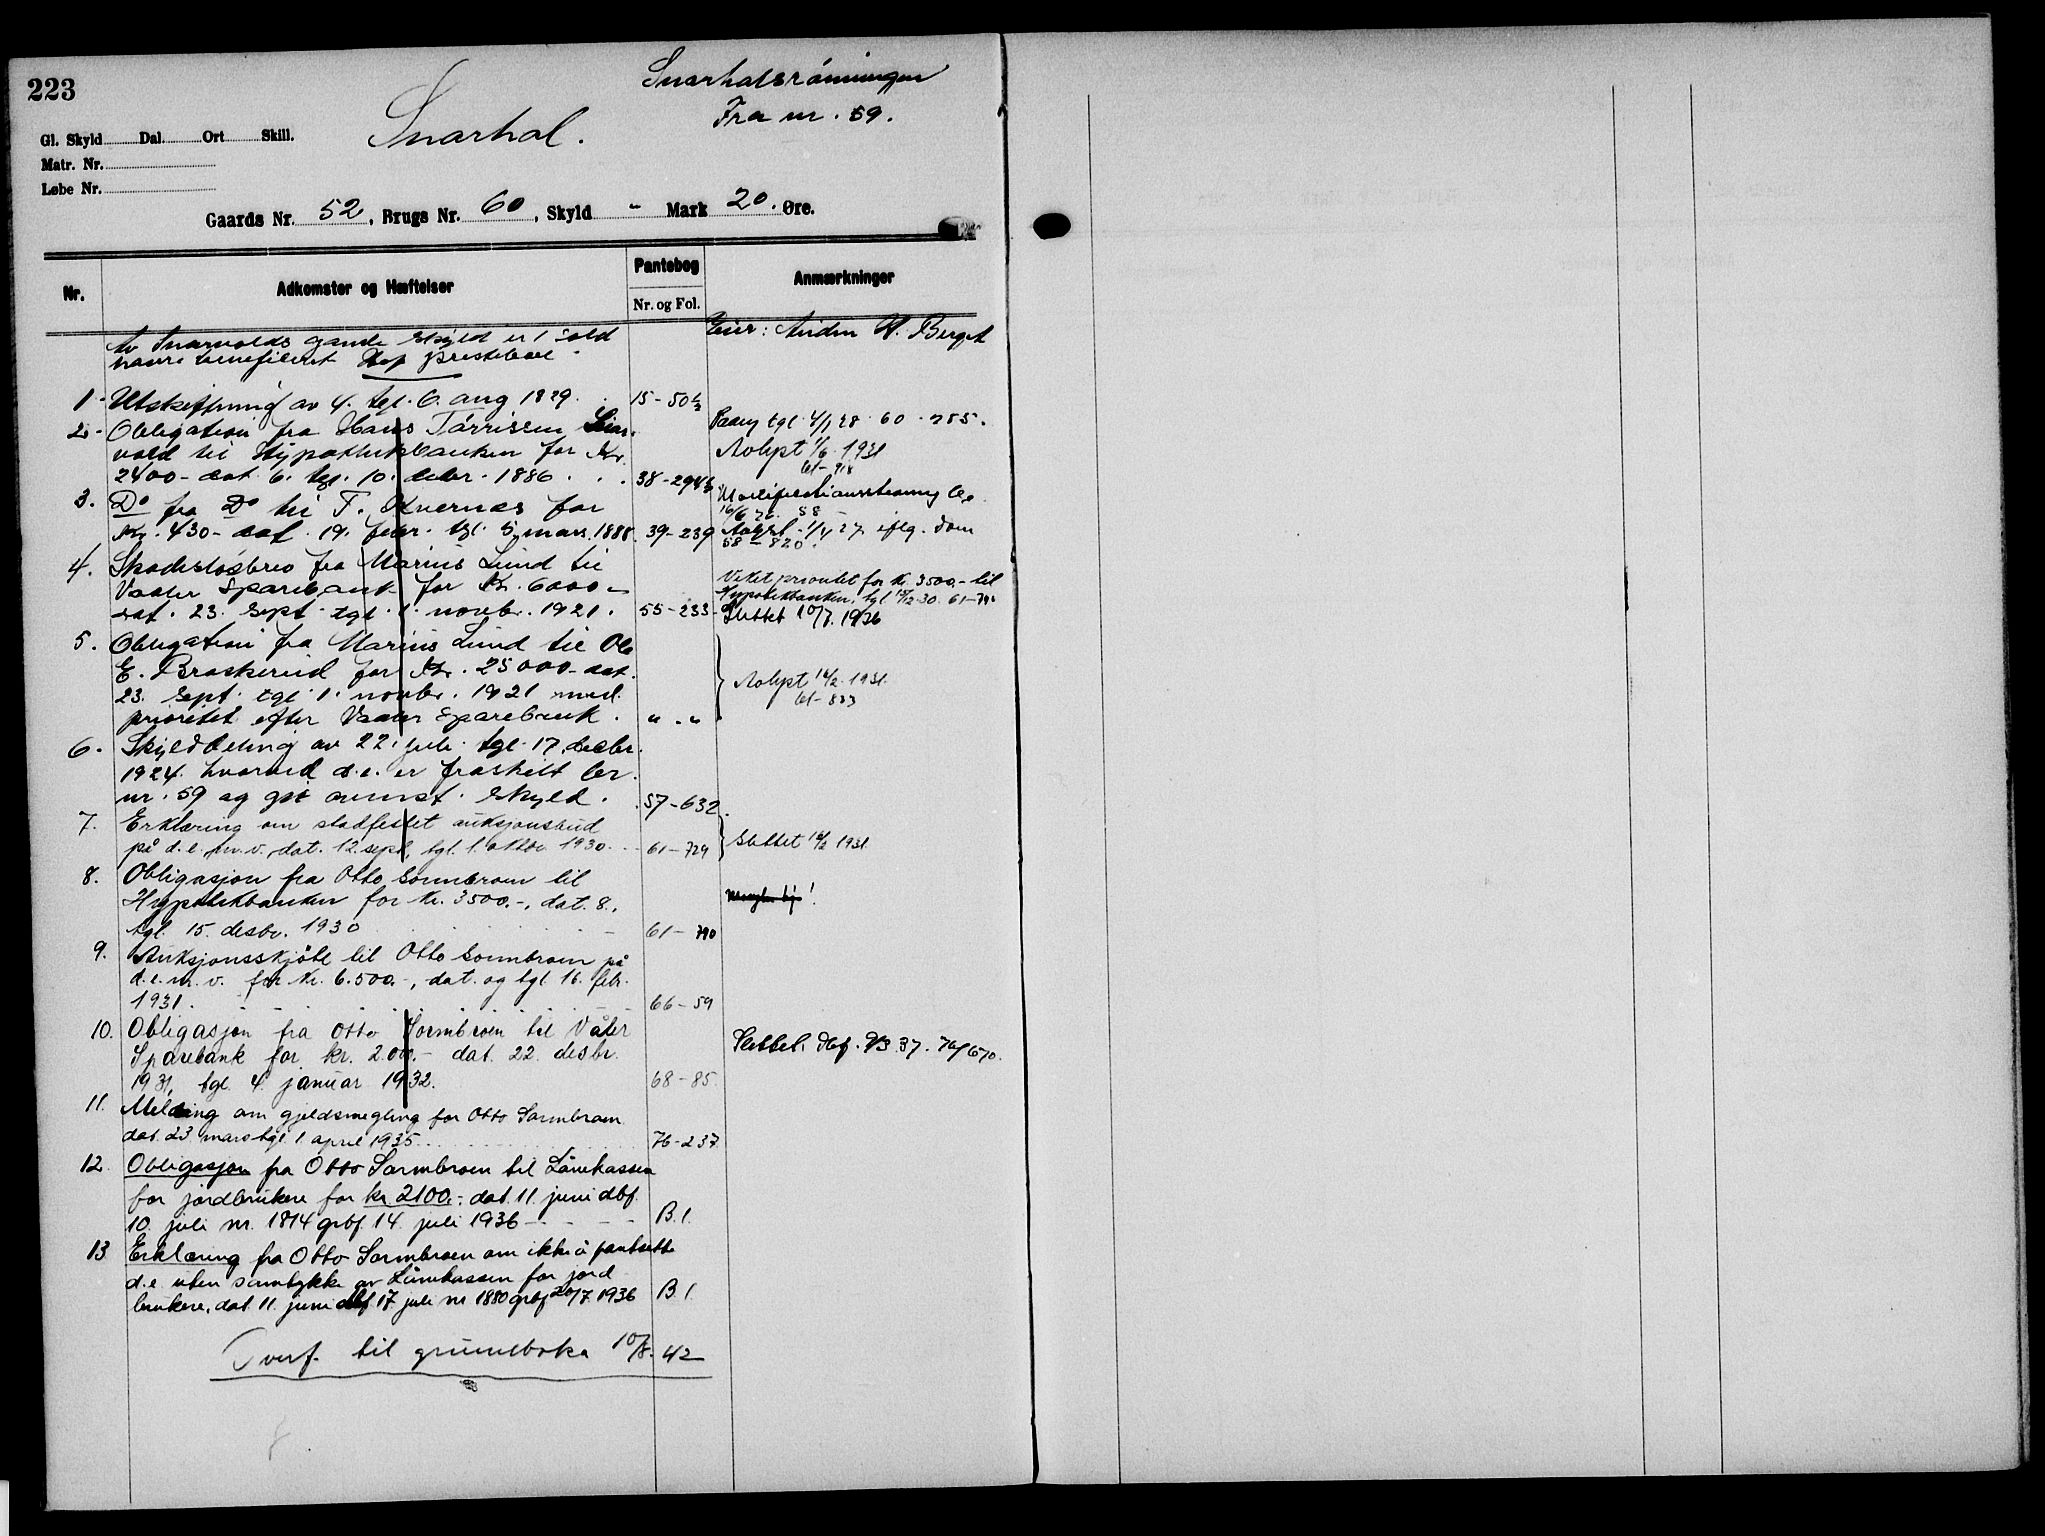 223
Snarholsrönningen
Fra nr. 59.
Snarhol.
Gl. Skyld Dal. Ort Skill.
Matr. Nr.
Løbe Nr.
Gaards Nr. 52, Brugs Nr. 60, Skyld " Mark 20. Øre.
Nr.
Adkomster og Hæftelser
Pantebog
Nr. og Fol.
Anmærkninger
Av Snarvolds gamle skyld er 1 sold
havre benefileret Hof prestebol.
Eier: H. Berget
1. Utskiftning av 4. tgl. 6. aug 1829. 15-50
2. Obligation fra Hans Tørrissen Snar-
vold til Hypothekbanken for Kr.
2400- dat 6. tgl. 10. debr. 1886 . . . 38-294
Paaeg tgl 4/1 28. 60-255.
Avlyst 1/6 1931
61-918
3. Do fra Do til F. Kvernes for
Kr. 430- dat. 19. febr. tgl. 5. mars. 1888. 39-239
58
Avlyst 1/4 27 iflg. dom
58-820.
4. Skadesløsbrev fra Marius Lund til
Vaaler Sparebank for Kr. 6000-
dat. 23. sept. tgl. 1. novbr. 1921. 55-233
Veket prioritet for kr. 3500.- til
Hypotekbanken. tgl 15/12 30. 61-790
Slettet 10/7. 1936
5. Obligation fra Marius Lund til Ole
E. Braskerud for Kr. 25000- dat.
23. sept. tgl. 1. novbr. 1921 med
prioritet efter Vaaler Sparebank. " - "
Avlyst 16/2. 1931.
61-833
6. Skylddeling av 22. juli tgl. 17. decbr.
1924 hvorved d.e. er fraskilt br.
nr. 59 og git anmst. skyld. 57-632.
7. Erklæring om stadfestet auksjonsbud
på d.e. m.v. dat. 12. sept, tgl. 1. oktbr 1930. 61-729
Slettet 16/2 1931
8. Obligasjon fra Otto Sormbroen til
Hypotekbanken for kr. 3500.-, dat. 8.,
tgl. 15. desbr. 1930 61-790
9. Auksjonsskjöte til Otto Sormbroen på
d.e. m.v. for kr. 6.500.-, dat. og tgl. 16. febr.
1931. 66-59
10. Obligasjon fra Otto Sormbroen til Våler
Sparebank for kr. 2.000.- dat. 22. desbr.
1931, tgl. 4. januar 1932. 68-85.
Slettet. dbf. 37. 76/670.
11. Melding om gjeldsmegling for Otto Sormbroen
dat. 23 mars tgl. 1. april 1935. 76-237
12. Obligasjon fra Otto Sormbroen til Lånekassen
for jordbrukere for kr 2100.- dat. 11. juni dbf.
10. juli nr. 1814 grbf. 14. juli 1936 B. 1.
13 Erklæring fra Otto Sormbroen om ikke å pantsette
d.e. uten samtykke av Lånekassen for jord
brukere, dat. 11. juni dbf 17 juli nr 1880 grbf 20/7 1936 B. 1.
Overf. til grunnboka 10/8. 42